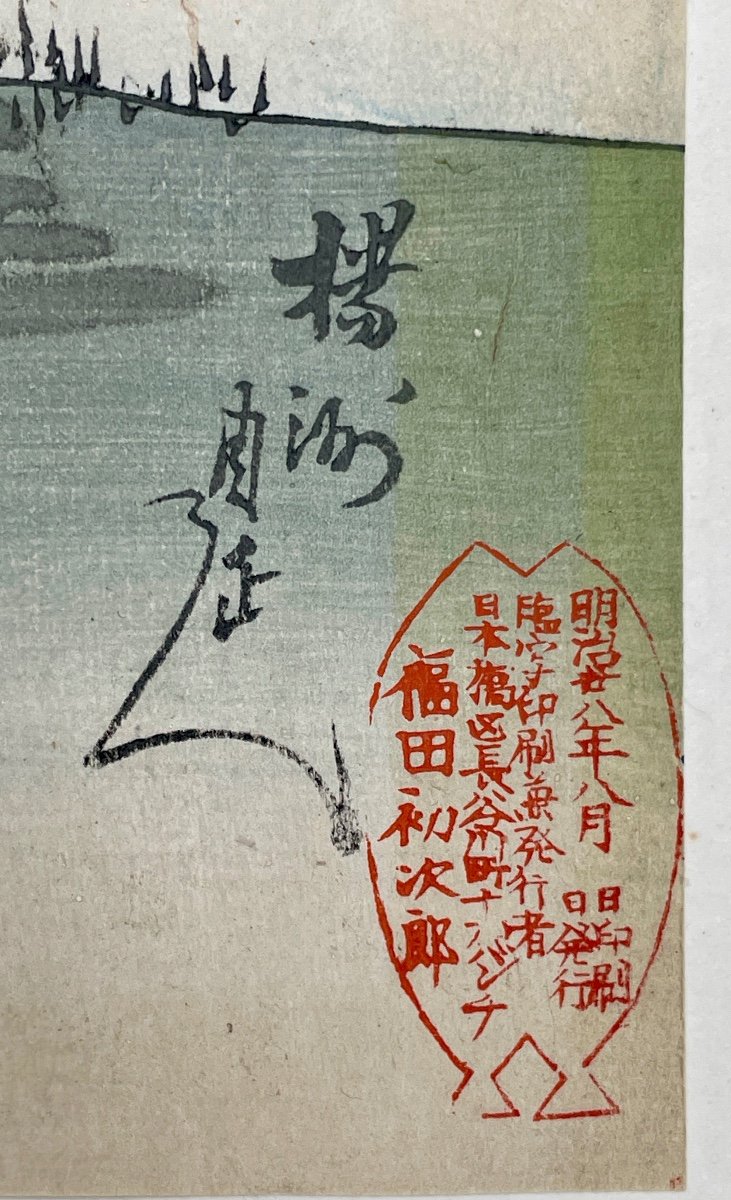 明治廿八年八月
日印刷
日発行
臨写印刷兼発行者
日本橋区長谷川町十八バンチ
福田初次郎
楊洲
周延